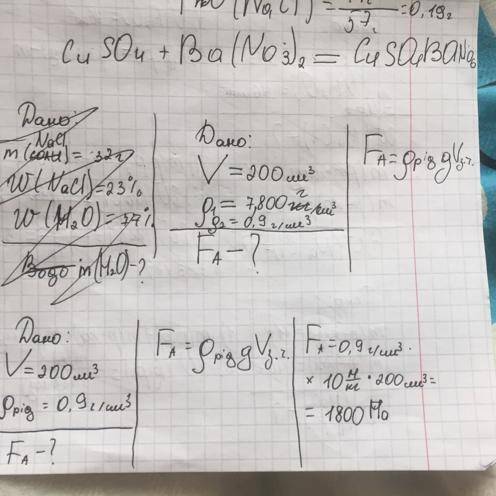 (NaCl) = = 0,19г
57
CuSO₄ + Ba(No₃)₂ = CuSO₄BaNO₃
Дано:
NaCl
m(соли) = 32г
W(NaCl)=23%
W(H₂O) = 77%
Водо m(H₂O)-?
Дано:
V = 200 см³
ρ₁ = 7,800 г/см³
ρ₂ = 0,9 г/см³
F_A - ?
F_A = ρ_рід g V з.ч.
Дано:
V = 200 см³
ρ_рід = 0,9 г/см³
F_A - ?
F_A = ρ_рід g V з.ч.
F_A = 0,9 г/см³ ·
× 10 Н/кг · 200 см³ =
= 1800